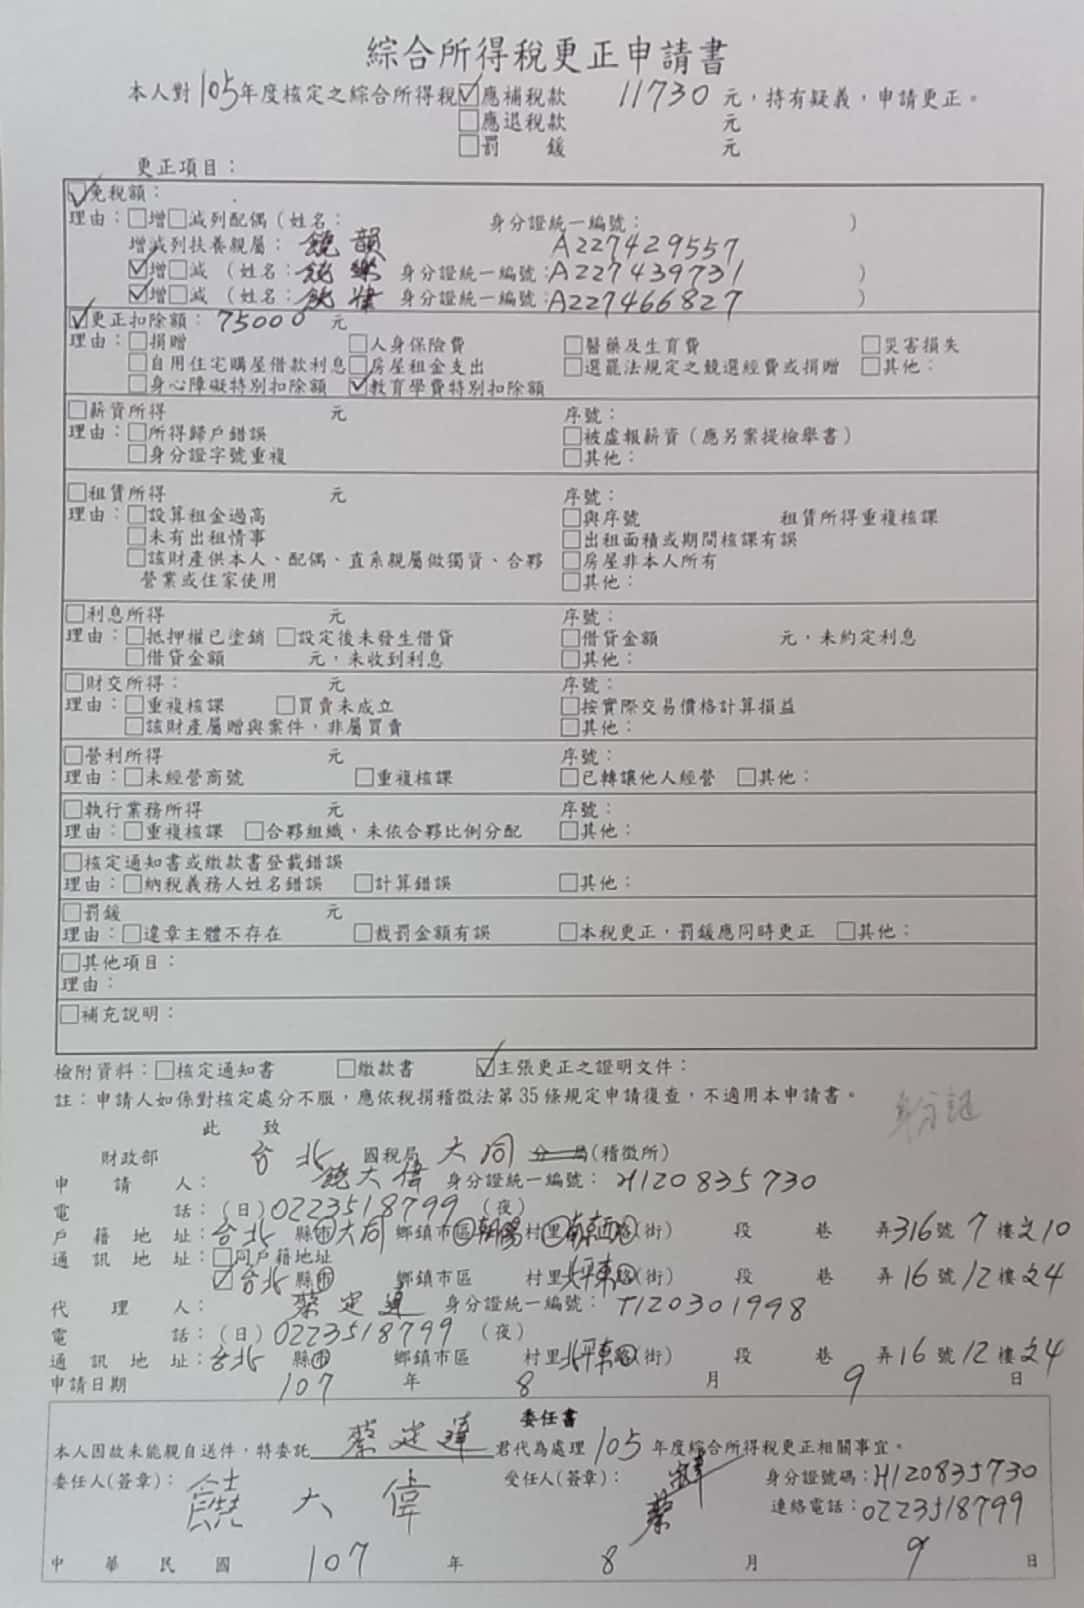 綜合所得稅更正申請書
本人對105年度核定之綜合所得稅☑應補稅款 11730 元，持有疑義，申請更正。
□應退稅款 元
□罰 鍰 元
更正項目：
☑免稅額：
理由：□增□減列配偶（姓名： 身分證統一編號： ）
增減列扶養親屬：饒 韻 A227429557
☑增□減（姓名：饒 樂 身分證統一編號：A227439731 ）
☑增□減（姓名：饒 身分證統一編號：A227466827 ）
☑更正扣除額：75000 元
理由：□捐贈 □人身保險費 □醫藥及生育費 □災害損失
□自用住宅購屋借款利息□房屋租金支出 □選罷法規定之競選經費或捐贈 □其他：
□身心障礙特別扣除額 ☑教育學費特別扣除額
□薪資所得 元 序號：
理由：□所得歸戶錯誤 □被虛報薪資（應另案提檢舉書）
□身分證字號重複 □其他：
□租賃所得 元 序號：
理由：□設算租金過高 □與序號 租賃所得重複核課
□未有出租情事 □出租面積或期間核課有誤
□該財產供本人、配偶、直系親屬做獨資、合夥 □房屋非本人所有
營業或住家使用 □其他：
□利息所得 元 序號：
理由：□抵押權已塗銷 □設定後未發生借貸 □借貸金額 元，未約定利息
□借貸金額 元，未收到利息 □其他：
□財交所得： 元 序號：
理由：□重複核課 □買賣未成立 □按實際交易價格計算損益
□該財產屬贈與案件，非屬買賣 □其他：
□營利所得 元 序號：
理由：□未經營商號 □重複核課 □已轉讓他人經營 □其他：
□執行業務所得 元 序號：
理由：□重複核課 □合夥組織，未依合夥比例分配 □其他：
□核定通知書或繳款書登載錯誤
理由：□納稅義務人姓名錯誤 □計算錯誤 □其他：
□罰鍰 元
理由：□違章主體不存在 □裁罰金額有誤 □本稅更正，罰鍰應同時更正 □其他：
□其他項目：
理由：
□補充說明：
檢附資料：□核定通知書 □繳款書 ☑主張更正之證明文件：
註：申請人如係對核定處分不服，應依稅捐稽徵法第35條規定申請復查，不適用本申請書。
身分證
此 致
財政部 台北 國稅局 大同 分局(稽徵所)
申請人： 饒大偉 身分證統一編號：H120835730
電話：(日)0223518799 (夜)
戶籍地址：台北 縣市大同 鄉鎮市區朝陽 村里南京西路(街) 段 巷 弄316號 7 樓之10
通訊地址：□同戶籍地址
☑台北縣市 鄉鎮市區 村里北平東路(街) 段 巷 弄16號12樓之4
代理人： 蔡定達 身分證統一編號：T120301998
電話：(日)0223518799 (夜)
通訊地址：台北 縣市 鄉鎮市區 村里北平東路(街) 段 巷 弄16號12樓之4
申請日期 107 年 8 月 9 日
委任書
本人因故未能親自送件，特委託 蔡定達 君代為處理105年度綜合所得稅更正相關事宜。
委任人(簽章)： 饒大偉 受任人(簽章)： 蔡 身分證號碼：H120835730
連絡電話：0223518799
中華民國 107 年 8 月 9 日